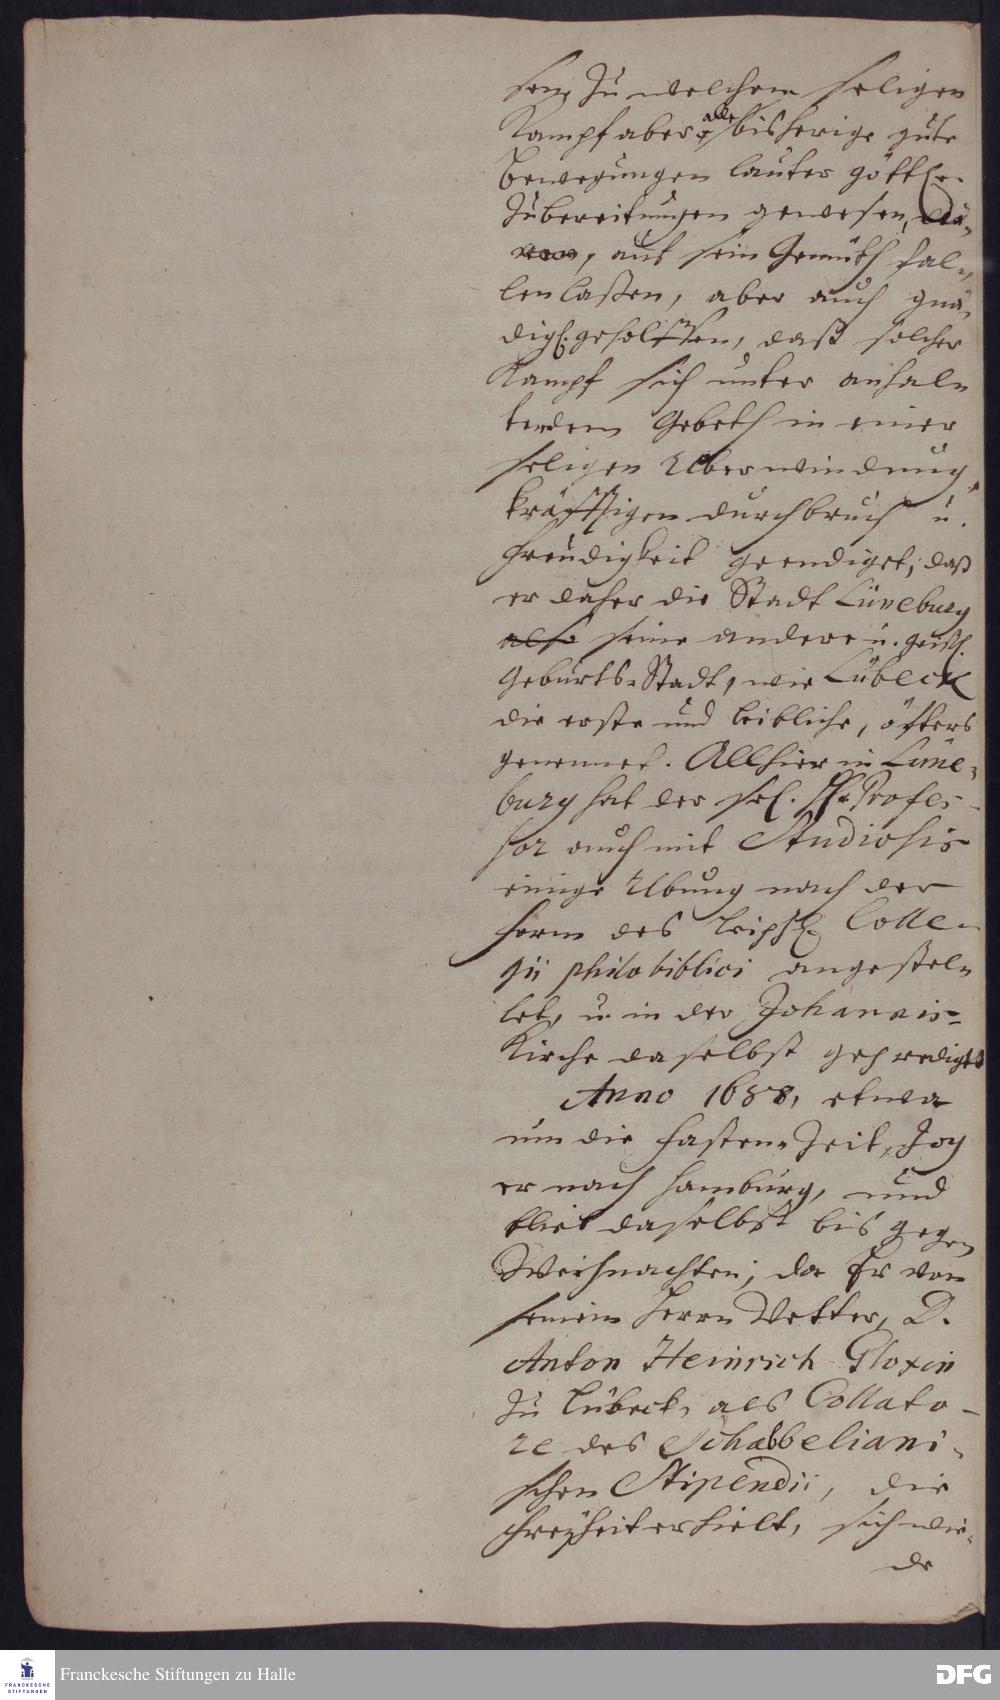 sen, zu welchem seligen
Kampf aber alle bisherige gute
Bewegungen lauter göttle.
Zubereitungen gewesen,
auf sein Gemüth fal-
len laßen, aber auch gnä-
digl. geholffen, daß solcher
Kampf sich unter anhal-
tendem Gebeth in einer
seligen Uberwindung,
kräfftigen durchbruch u.
Freudigkeit geendiget; daß
er daher die Stadt Lüneburg
also seine andere u. geistl.
Geburts-Stadt, wie Lübeck
die erste und leibliche, öfters
genennet. Allhier in Lüne-
burg hat der sel. H. Profes-
sor auch mit Studiosis
einige Ubung nach der
Form des Leipz. Colle-
gii philobiblici angestel-
let, u. in der Johannis-
Kirche daselbst geprediget
Anno 1688, etwa
um die Fasten-Zeit, zog
er nach Hamburg, und
blieb daselbst bis gegen
Weihnachten; da Er von
seinem Herrn Vetter, D.
Anton Heinrich Gloxin
zu Lübeck, als Collato-
re des Schabbeliani-
schen Stipendii, die
Freyheit erhielt, sich wie-
de
Franckesche Stiftungen zu Halle
FRANCKESCHE
STIFTUNGEN
DFG